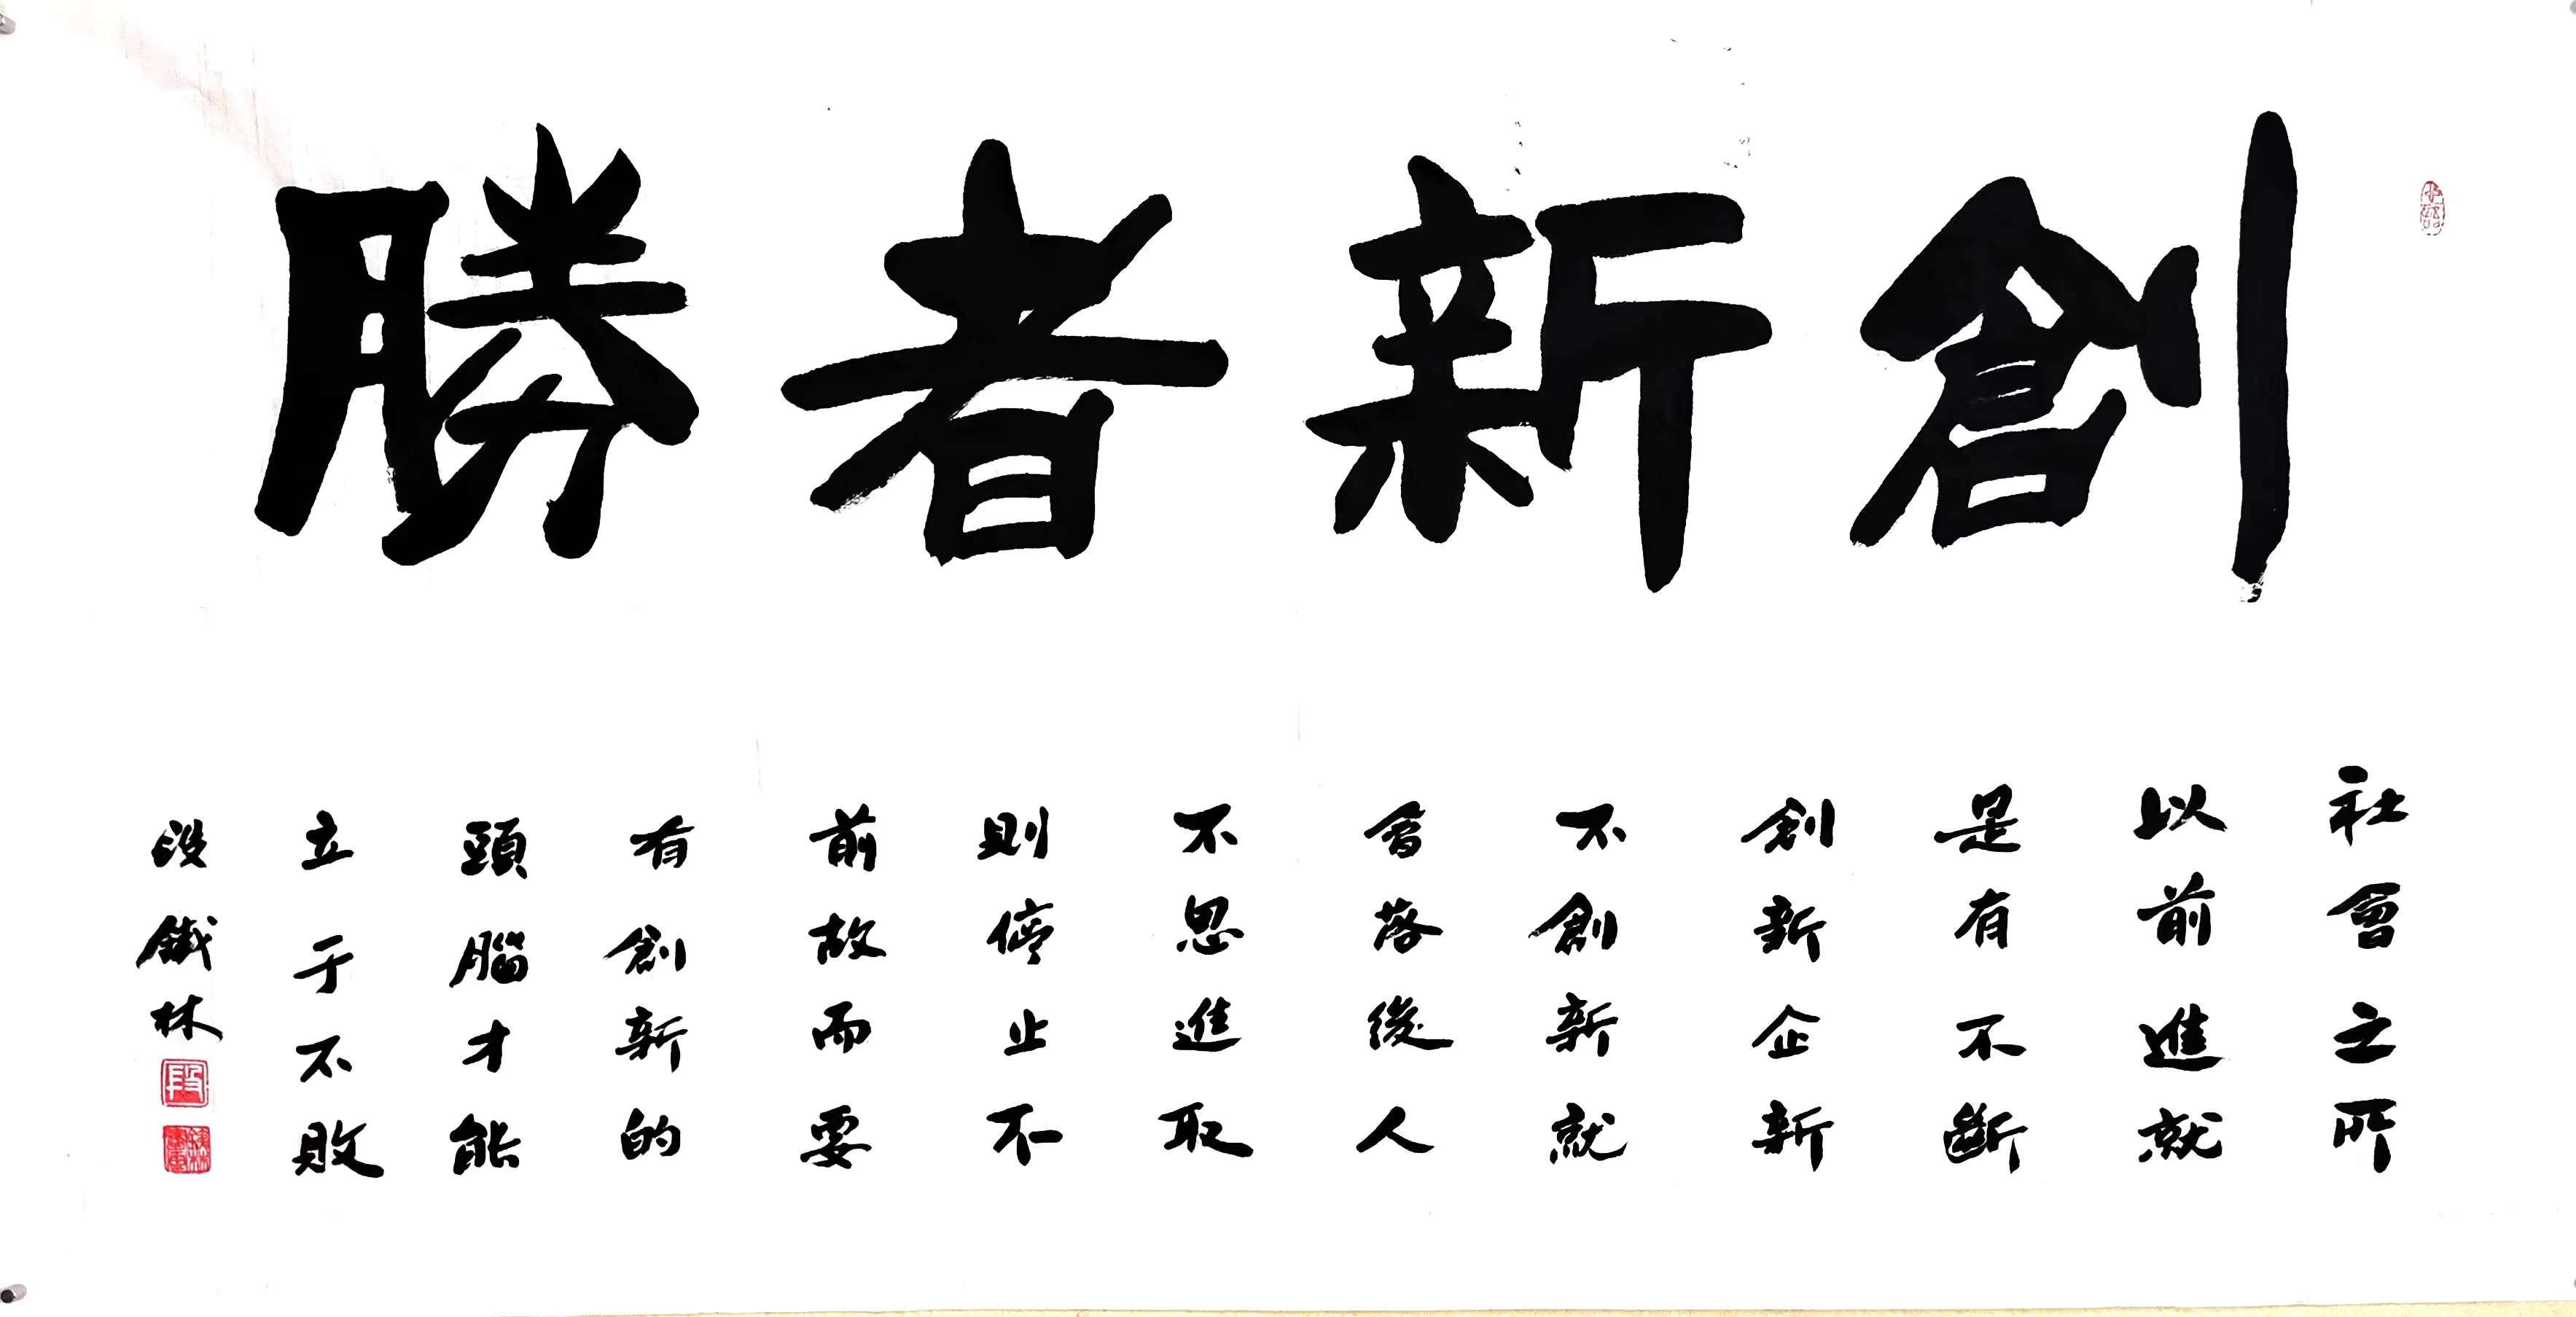 創新者勝
社會之所
以前進就
是有不斷
創新企新
不創新就
會落後人
不思進取
則停止不
前故而要
有創新的
頭腦才能
立于不敗
段鐵林
段